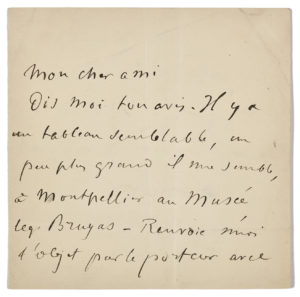 Mon cher ami
Dis moi ton avis. Il y a
un tableau semblable, un
peu plus grand il me semble,
à Montpellier au Musée
leg. Bruyas – Renvoie moi
l'objet par le porteur avec